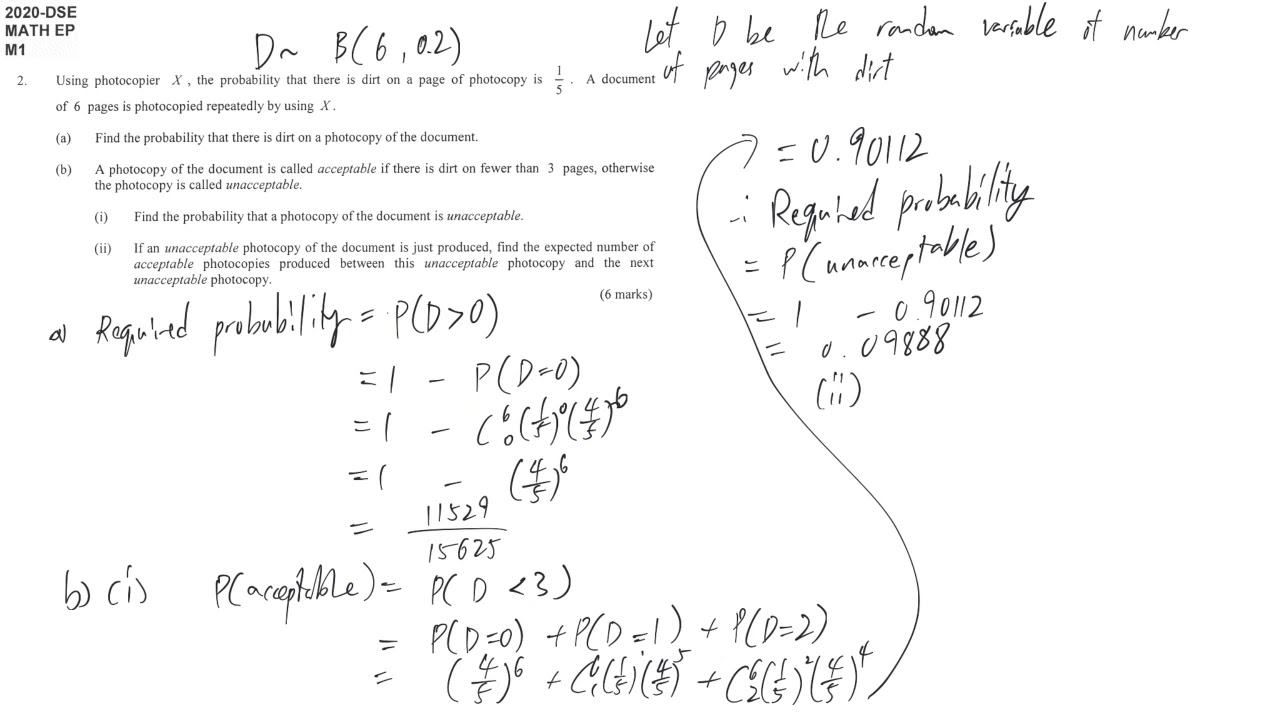 2020-DSE
MATH EP
M1
D ~ B(6, 0.2)
Let D be the random variable of number
of pages with dirt
2. Using photocopier X, the probability that there is dirt on a page of photocopy is 1/5. A document
of 6 pages is photocopied repeatedly by using X.
(a) Find the probability that there is dirt on a photocopy of the document.
(b) A photocopy of the document is called acceptable if there is dirt on fewer than 3 pages, otherwise
the photocopy is called unacceptable.
(i) Find the probability that a photocopy of the document is unacceptable.
(ii) If an unacceptable photocopy of the document is just produced, find the expected number of
acceptable photocopies produced between this unacceptable photocopy and the next
unacceptable photocopy.
(6 marks)
a) Required probability = P(D>0)
= 1 - P(D=0)
= 1 - C⁶₀(1/5)⁰(4/5)⁶
= 1 - (4/5)⁶
= 11529/15625
b) (i) P(acceptable) = P(D<3)
= P(D=0) + P(D=1) + P(D=2)
= (4/5)⁶ + C⁶₁(1/5)¹(4/5)⁵ + C⁶₂(1/5)²(4/5)⁴
= 0.90112
∴ Required probability
= P(unacceptable)
= 1 - 0.90112
= 0.09888
(ii)